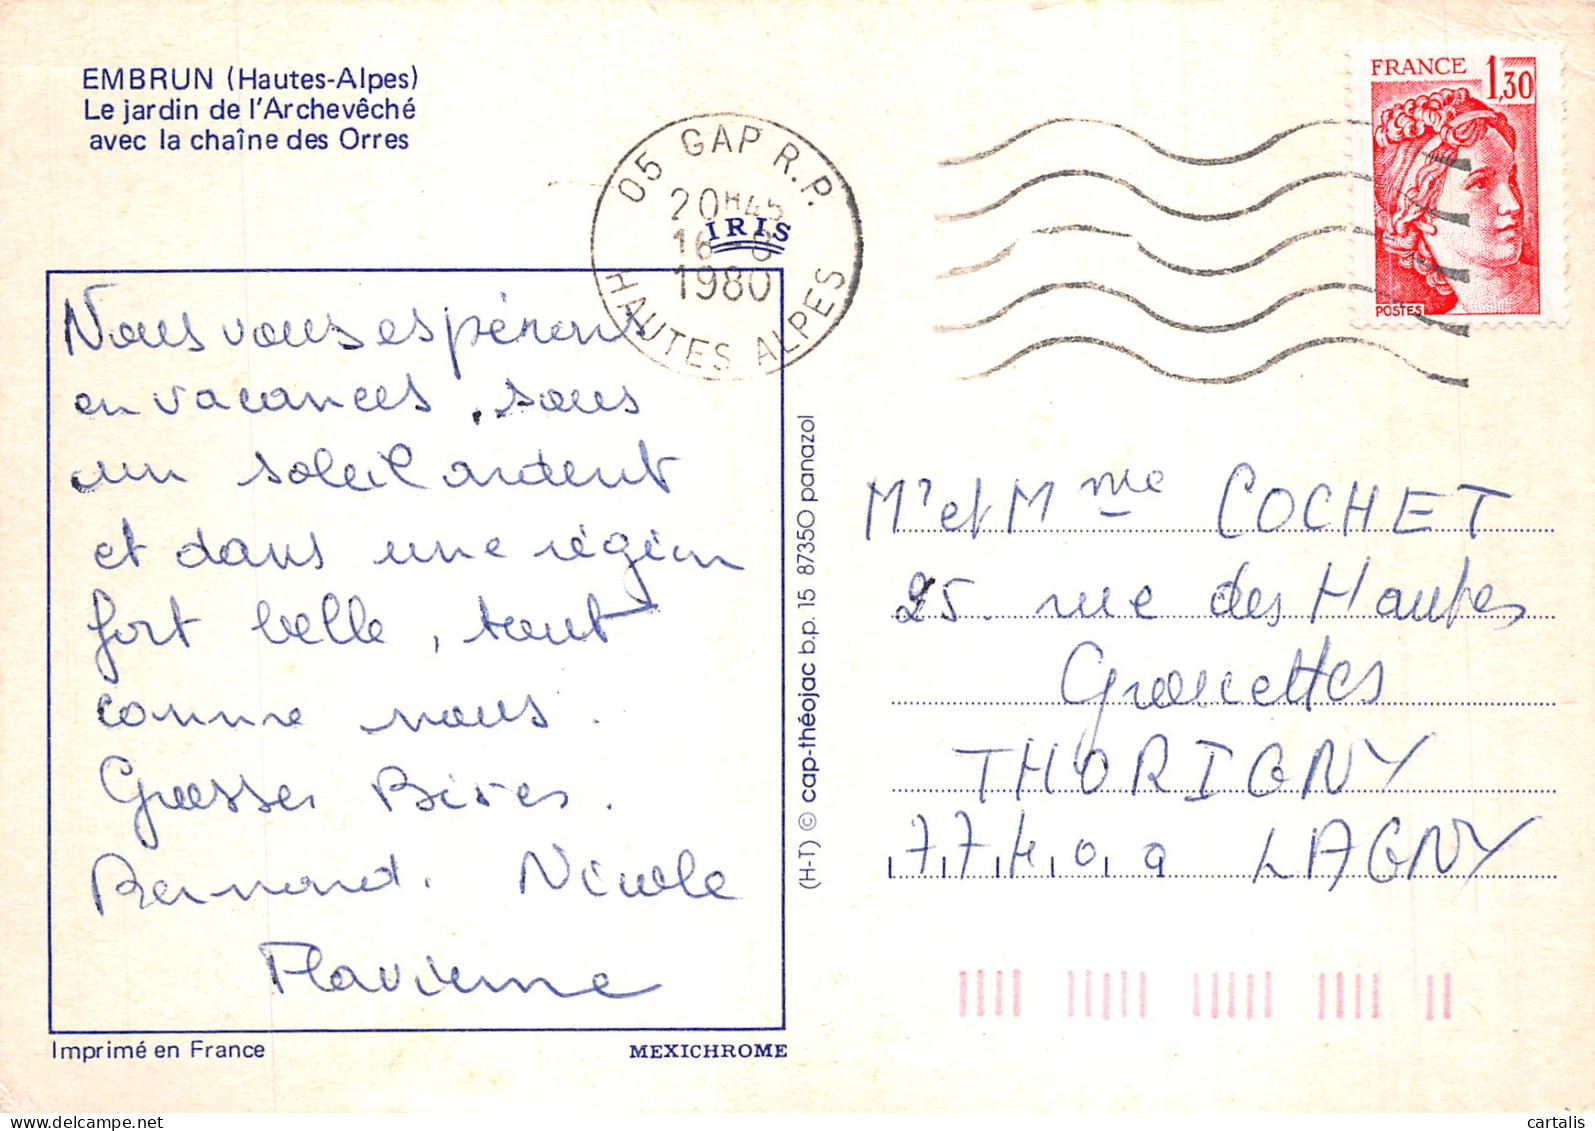 EMBRUN (Hautes-Alpes)
Le jardin de l'Archevêché
avec la chaîne des Orres
05 GAP R.P.
20H45
16 8
1980
HAUTES ALPES
IRIS
FRANCE 1,30
POSTES
Nous vous espérons
en vacances, sous
un soleil ardent
et dans une région
fort belle, tout
comme nous.
Grosses Bises.
Bernard. Nicole
Flavienne
Mr et Mme COCHET
25. rue des Hautes
Grouettes
THORIGNY
77400 LAGNY
(H-T) © cap-théojac b.p. 15 87350 panazol
Imprimé en France
MEXICHROME
cartalis